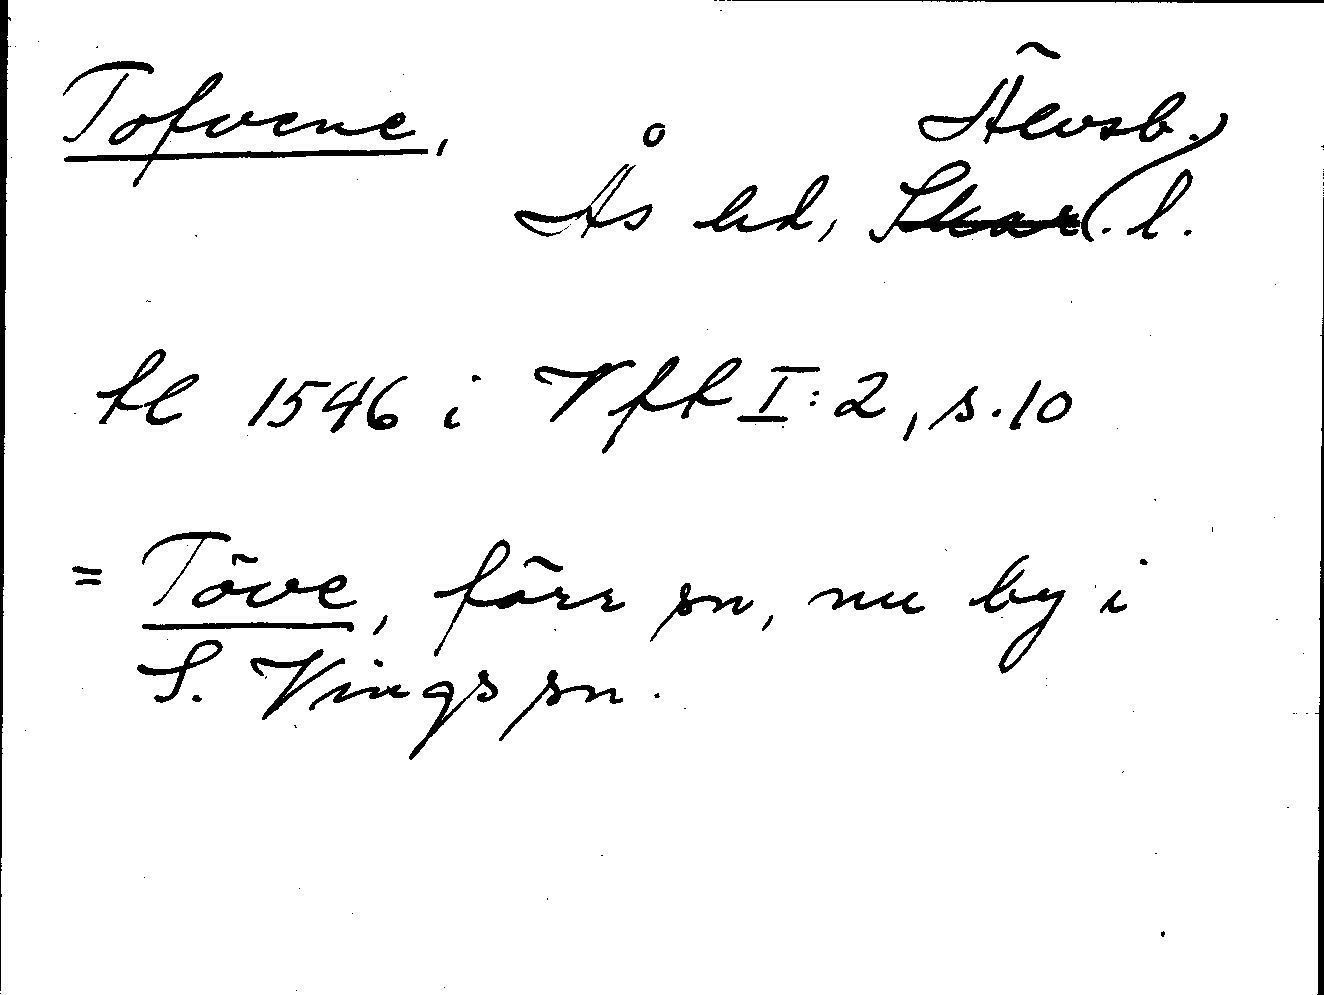 Tofvene, Älvsb.
Ås hd, Skar. l.
tl 1546 i Vfft I:2, s. 10
= Töve, förr sn, nu by i
S. Vings sn.